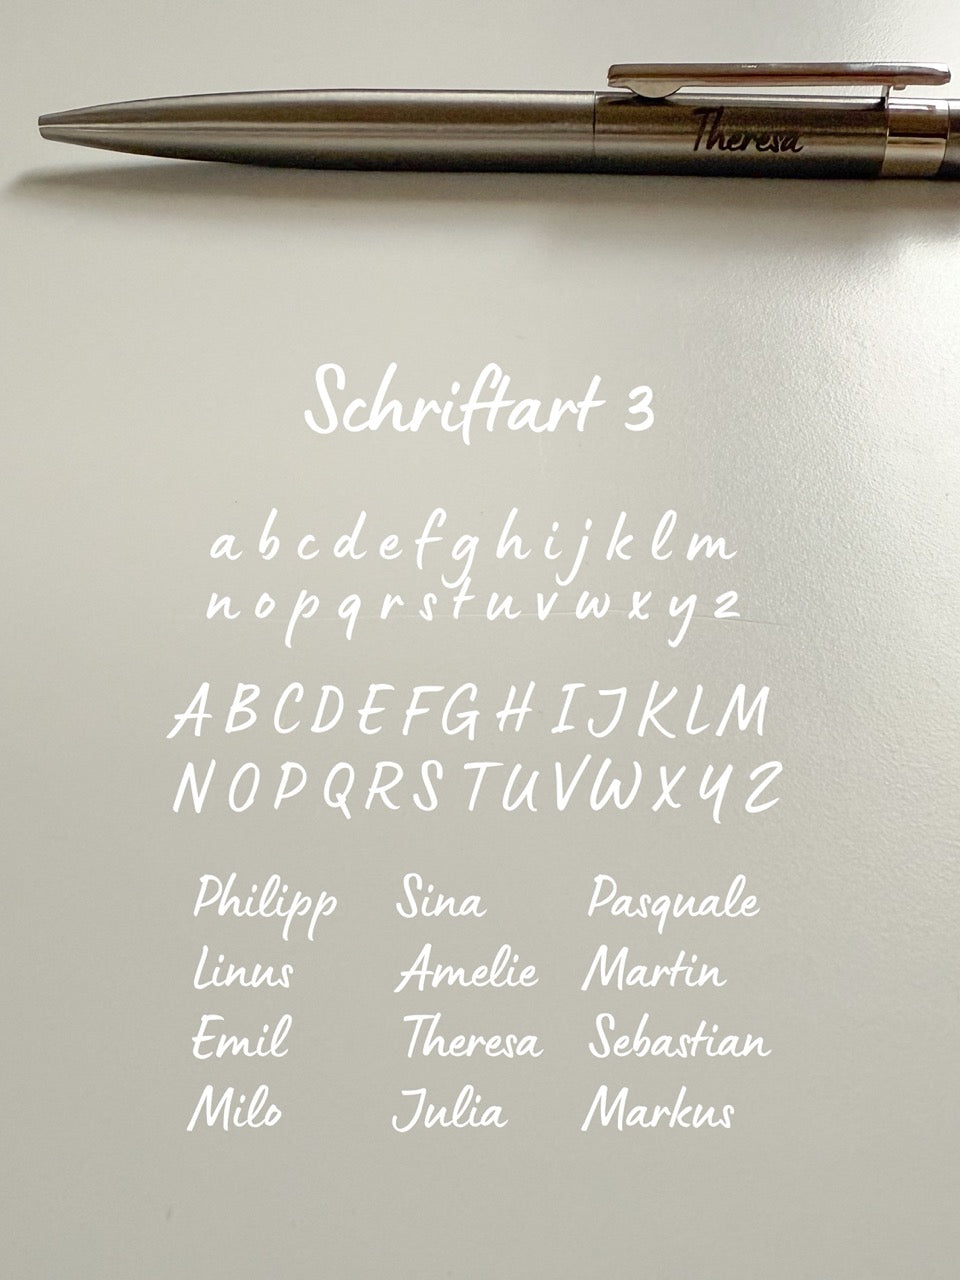 Theresa
Schriftart 3
a b c d e f g h i j k l m
n o p q r s t u v w x y z
A B C D E F G H I J K L M
N O P Q R S T U V W X Y Z
Philipp Sina Pasquale
Linus Amelie Martin
Emil Theresa Sebastian
Milo Julia Markus